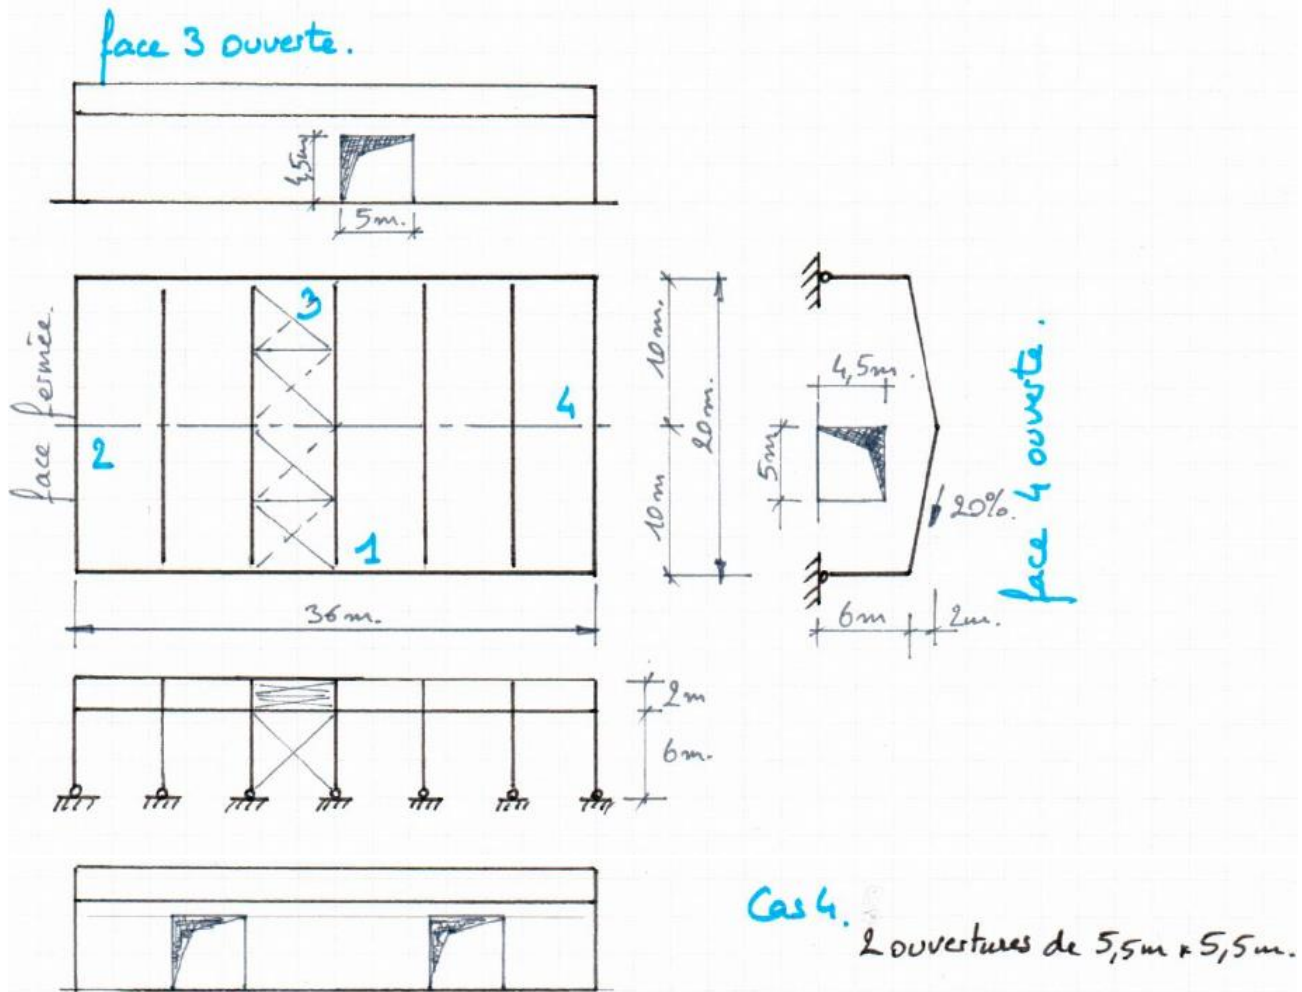 face 3 ouverte.
4,5m
5m.
face fermée.
2
3
4
1
36m.
10m.
10m
20m.
4,5m.
5m
20%.
6m
2m.
face 4 ouverte.
2m
6m.
Cas 4.
2 ouvertures de 5,5m x 5,5m.